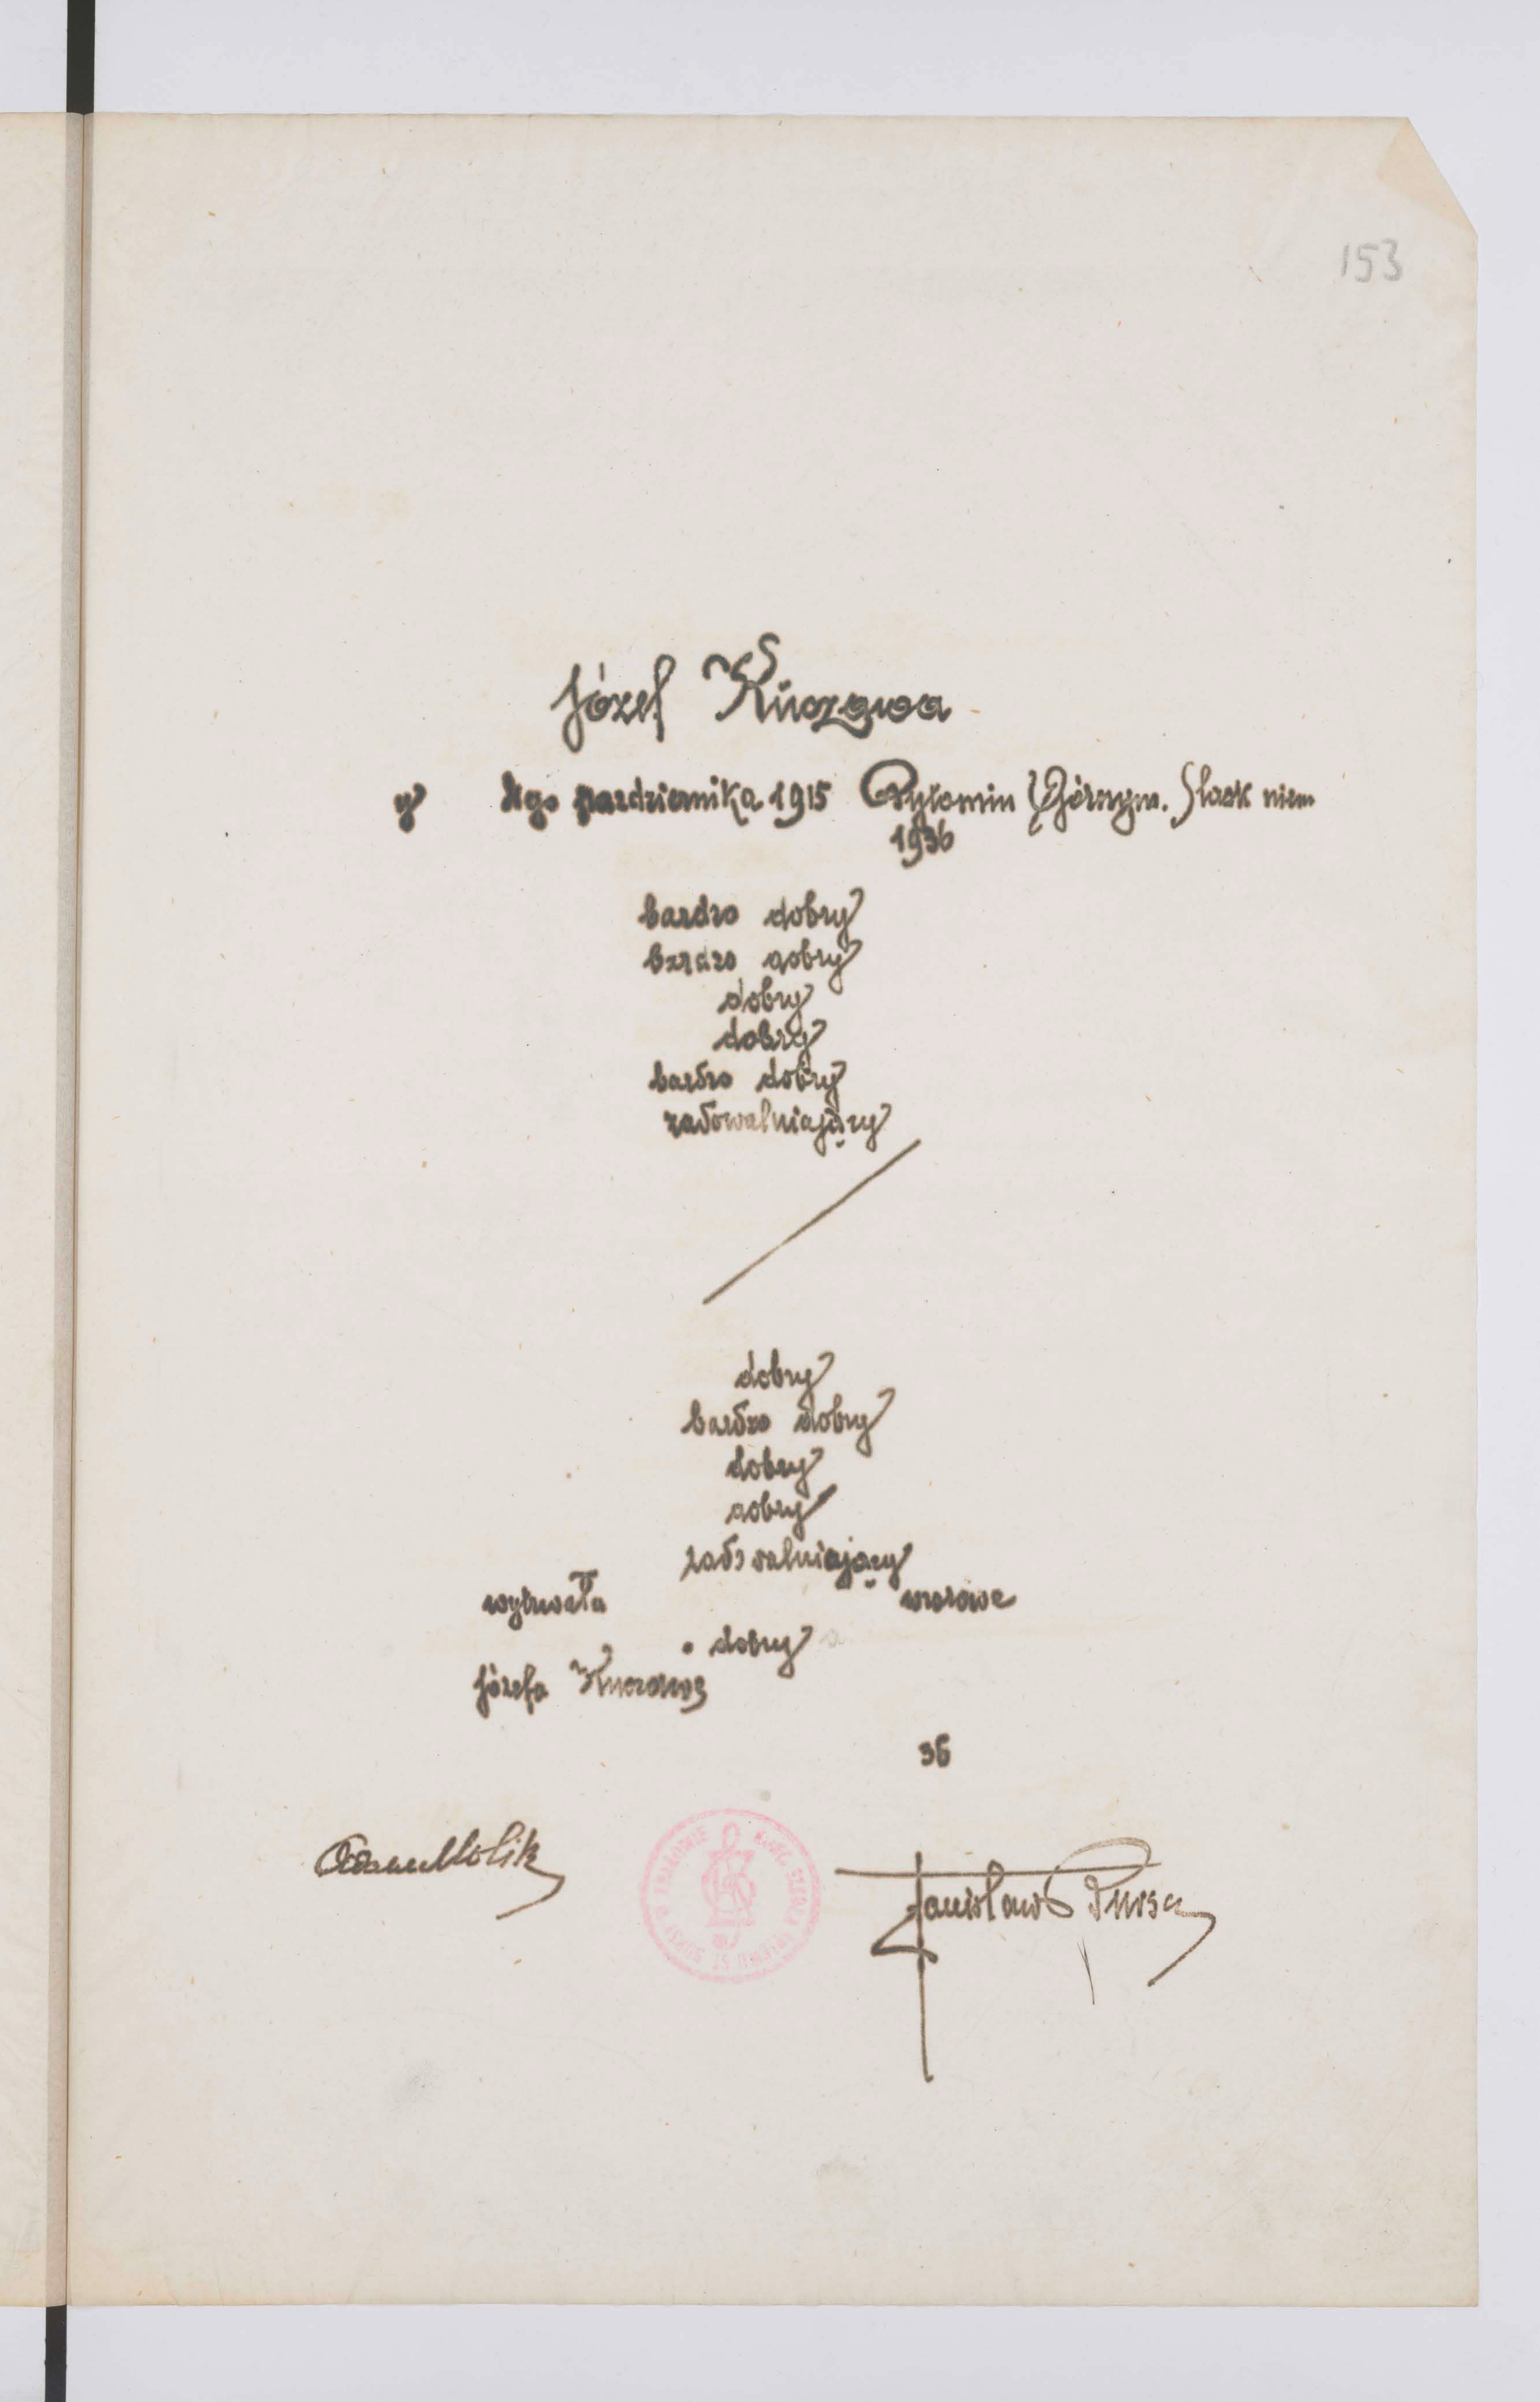 153
Józef Kuczawa
y 1go pazdziernika 1915 Bytomiu Górnym. Slask niem
1936
bardzo dobry
bardzo dobry
dobry
dobry
bardzo dobry
zadowalniający
dobry
bardzo dobry
dobry
dobry
zadowalniający
wytrwała wzorowe
dobry
Józefa Kuczawę
36